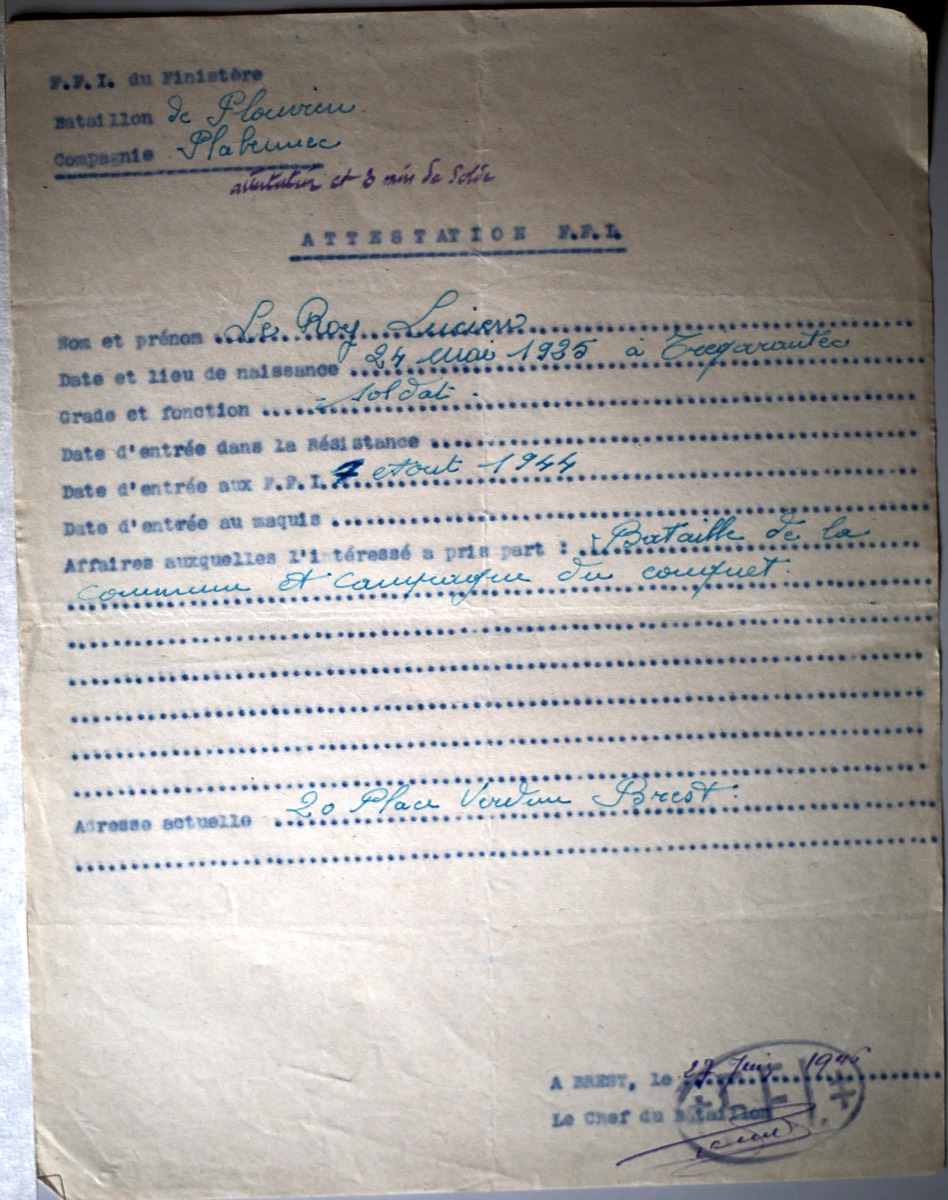 F.F.I. du Finistère
Bataillon de Plouvien
Compagnie Plabennec
attestation et 3 mois de Solde
ATTESTATION F.F.I.
Nom et prénom Le Roy Lucien
Date et lieu de naissance 24 mai 1925 à Tregarantec
Grade et fonction soldat.
Date d'entrée dans la Résistance
Date d'entrée aux F.F.I. Aout 1944
Date d'entrée au maquis
Affaires auxquelles l'intéressé a pris part : Bataille de la
commune et campagne du conquet.
Adresse actuelle 20 Place Verdun Brest.
A BREST, le 27 Juin 1945
Le Chef du Bataillon
F.F.I.